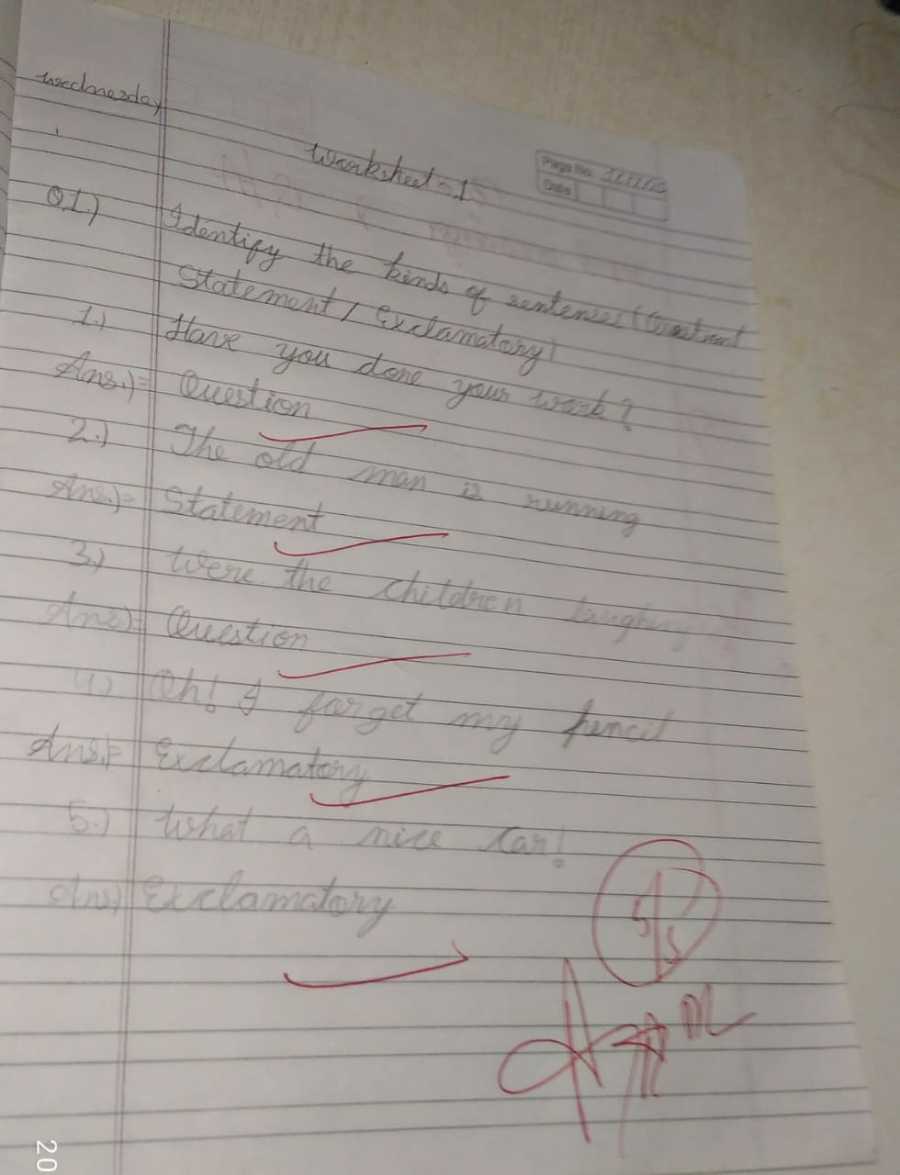 Wednesday
Worksheet-1
Page No.
Date
Q1.) Identify the kinds of sentences (
Statement / Exclamatory)
1.) Have you done your work?
Ans.)= Question
2.) The old man is running
Ans.)= Statement
3.) Were the children laughing
Ans.)= Question
4.) Oh! I forget my pencil
Ans.)= Exclamatory
5.) What a nice car!
Ans.) Exclamatory
5/5
20